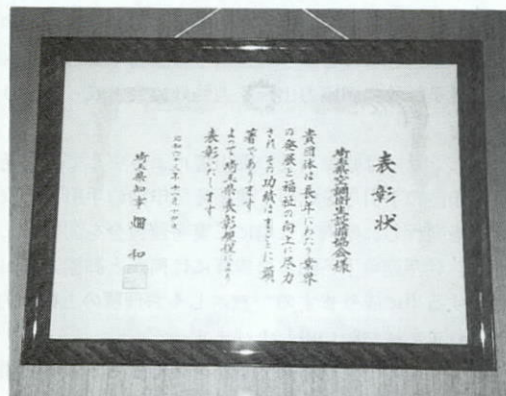 表彰状
埼玉県空調衛生設備協会様
貴団体は長年にわたり業界
の発展と福祉の向上に尽力
され その功績はまことに顕
著であります
よって埼玉県表彰規程により
表彰いたします
昭和六十三年十一月十四日
埼玉県知事 畑 和